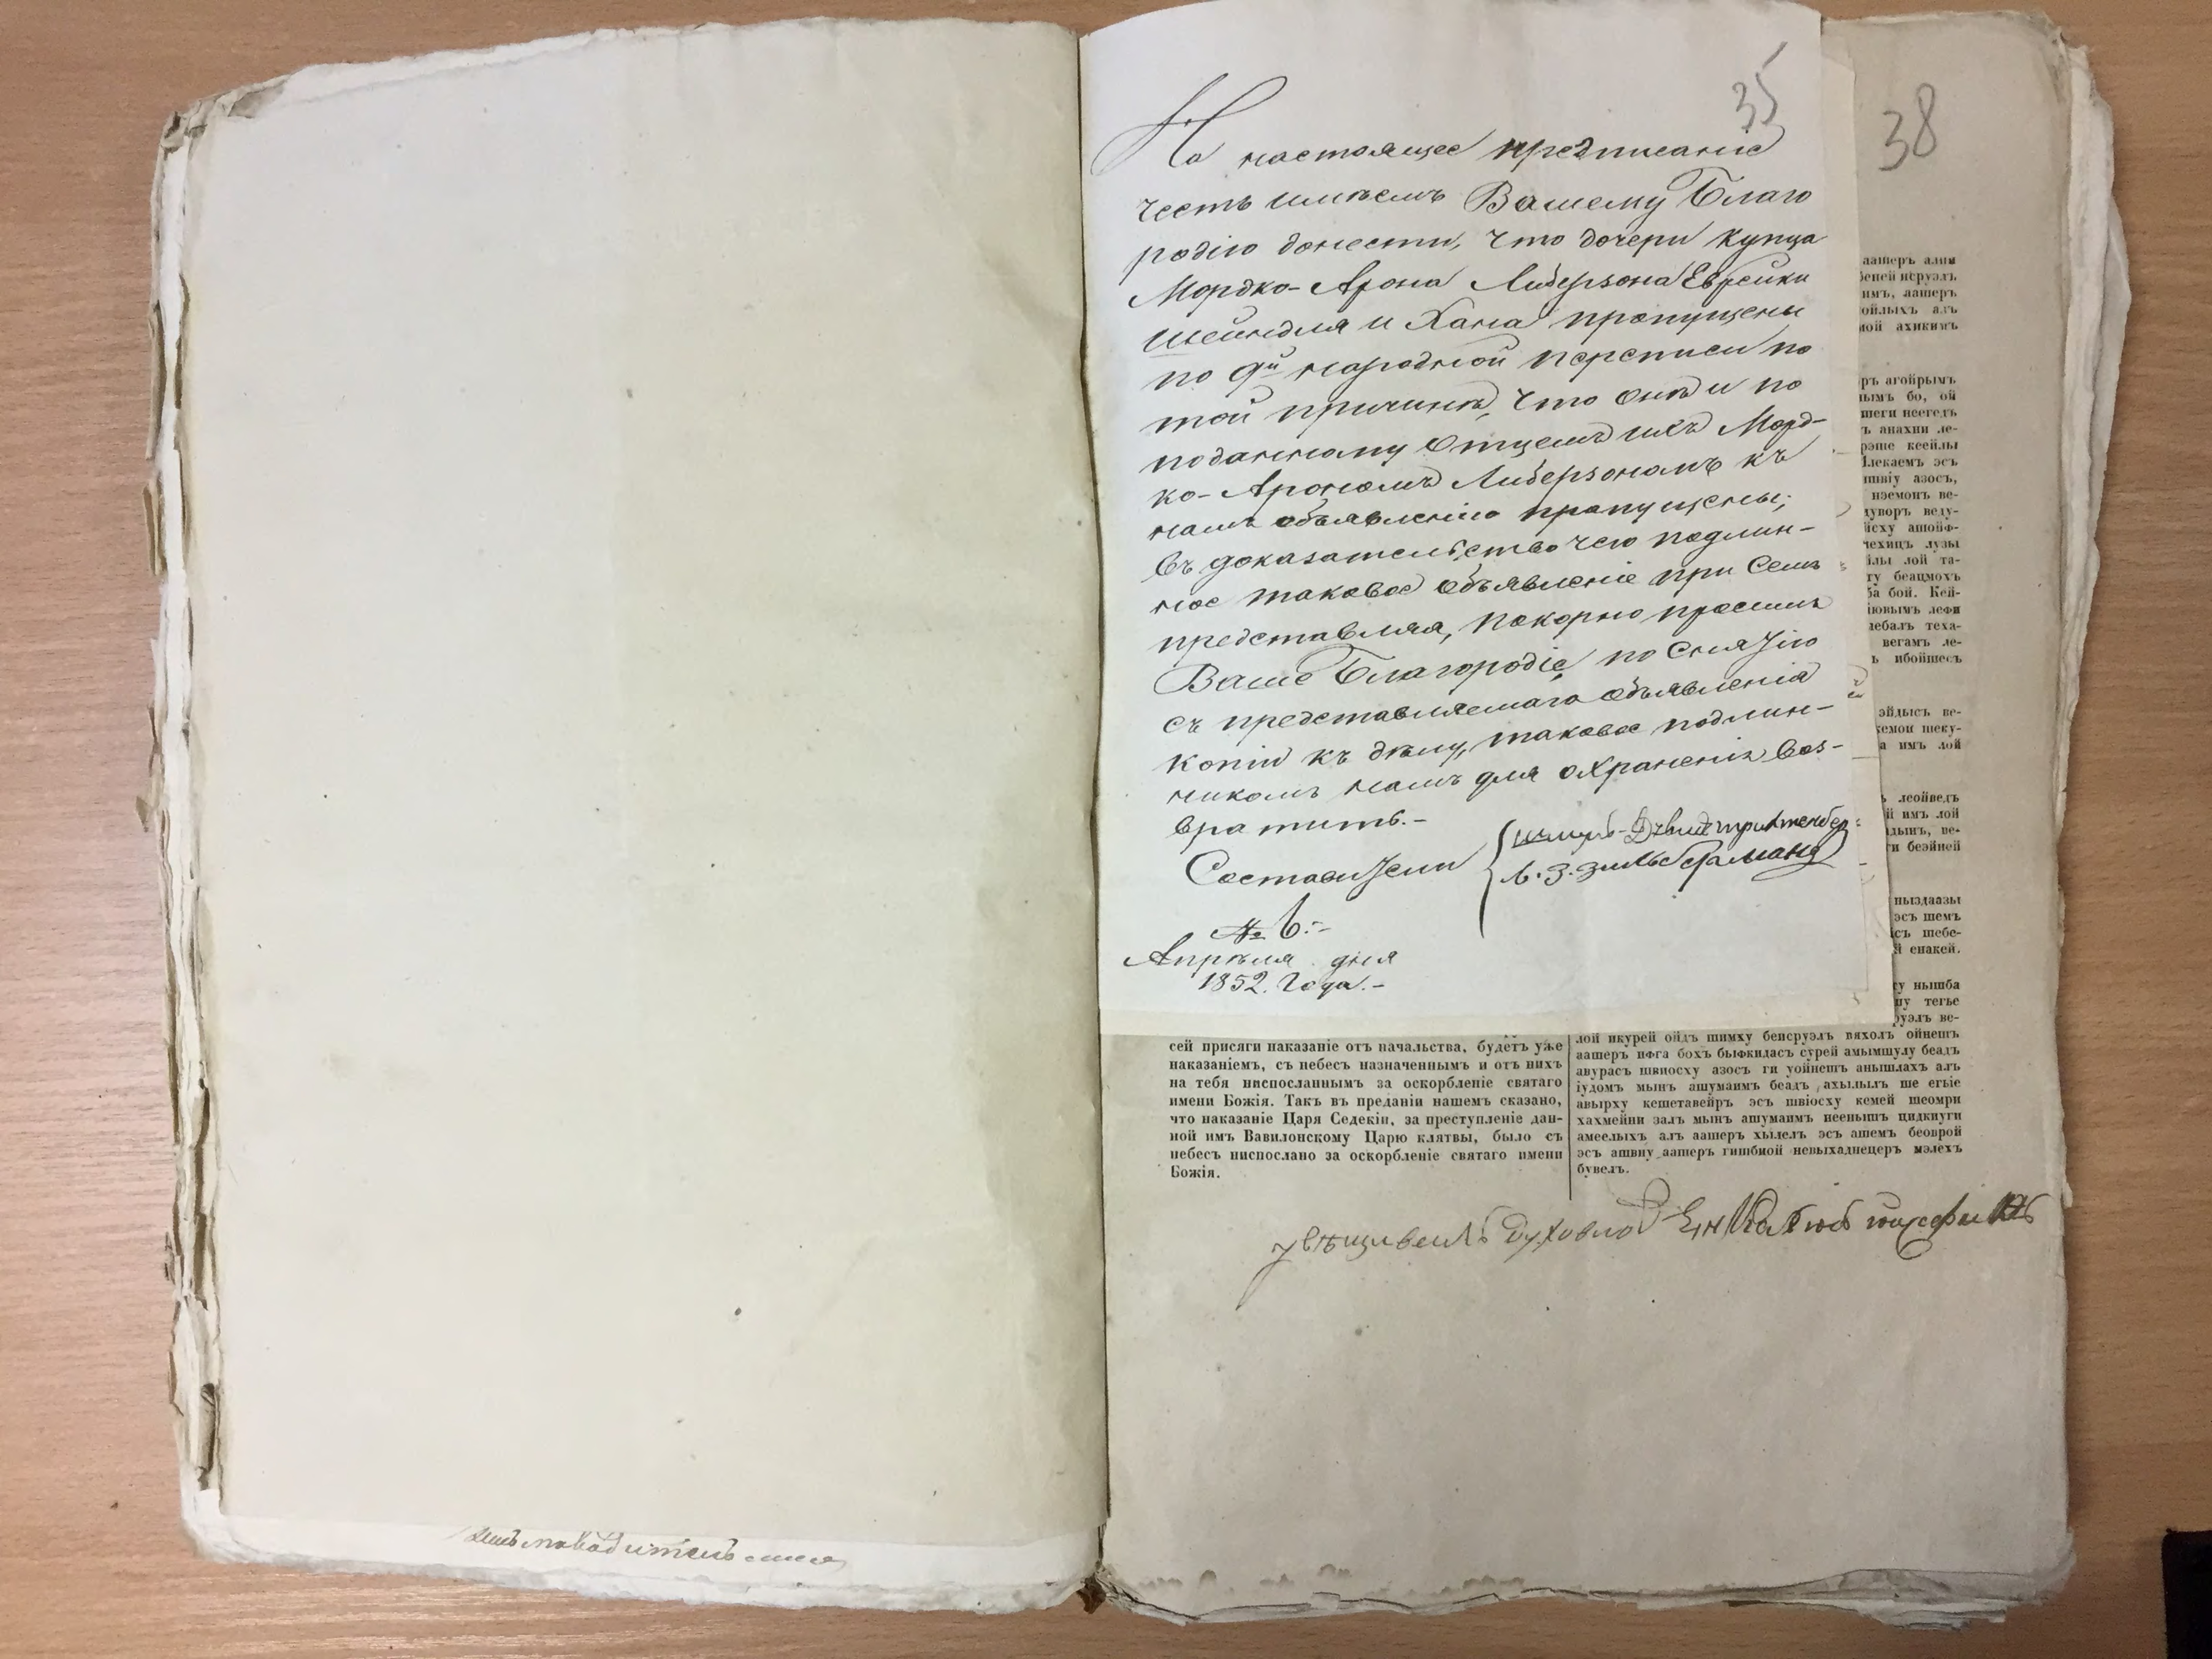 35
На настоящее предписаніе
честь имѣемъ Вашему Благо
родію донести, что дочери купца
Мордко-Арона Либерзона Еврейки
Шейндля и Хана пропущены
по 9й народной переписи по
той причинѣ, что онѣ и по
поданному Отцемъ ихъ Морд-
ко-Арономъ Либерзономъ къ
намъ объявленію пропущены;
въ доказательство чего подлин-
ное таковое объявленіе при семъ
представляя, покорно просимъ
Ваше Благородіе по снятію
съ представляемаго объявленія
копіи къ дѣлу, таковое подлин-
никомъ намъ для охраненія воз-
вратить.-
Составители
Л. З. Зильберманъ
№ 6.-
Апрѣля дня
1852. Года.-
38
аашеръ
исруэлъ
имъ, аашеръ
ойлыхъ алъ
ахикимъ
агойрымъ
бо, ой
неегедъ
анахни ле-
кеейлы
эсъ
азосъ,
нэемонъ ве-
веду-
ашойф-
лузы
лой та-
беацмохъ
бой. Кей-
лефи
теха-
вегамъ ле-
ибойшесъ
ве-
шеку-
имъ лой
леойведъ
имъ лой
ве-
беэйней
ныздаазы
эсъ шемъ
шебе-
енакей.
нышба
тегье
ве-
сей присяги наказаніе отъ начальства, будетъ уже
наказаніемъ, съ небесъ назначеннымъ и отъ нихъ
на тебя ниспосланнымъ за оскорбленіе святаго
имени Божія. Такъ въ преданіи нашемъ сказано,
что наказаніе Царя Седекіи, за преступленіе дан-
ной имъ Вавилонскому Царю клятвы, было съ
небесъ ниспослано за оскорбленіе святаго имени
Божія.
лой икурей ойдъ шимху бенсруэлъ вяхолъ ойнешъ
аашеръ ифга бохъ быфкидасъ сурей амымшулу беадъ
авурасъ швиосху азосъ ги уойнешъ анышлахъ алъ
іудомъ мынъ ашумаимъ беадъ ахылылъ ше егьіе
авырху кешетавейръ эсъ швіосху кемей шеомри
хахмейни залъ мынъ ашумаимъ неенышъ цидкиуги
амеелыхъ алъ аашеръ хылелъ эсъ ашемъ беоврой
эсъ ашвиу аашеръ гишбиой невыхаднецеръ мэлехъ
бувелъ.